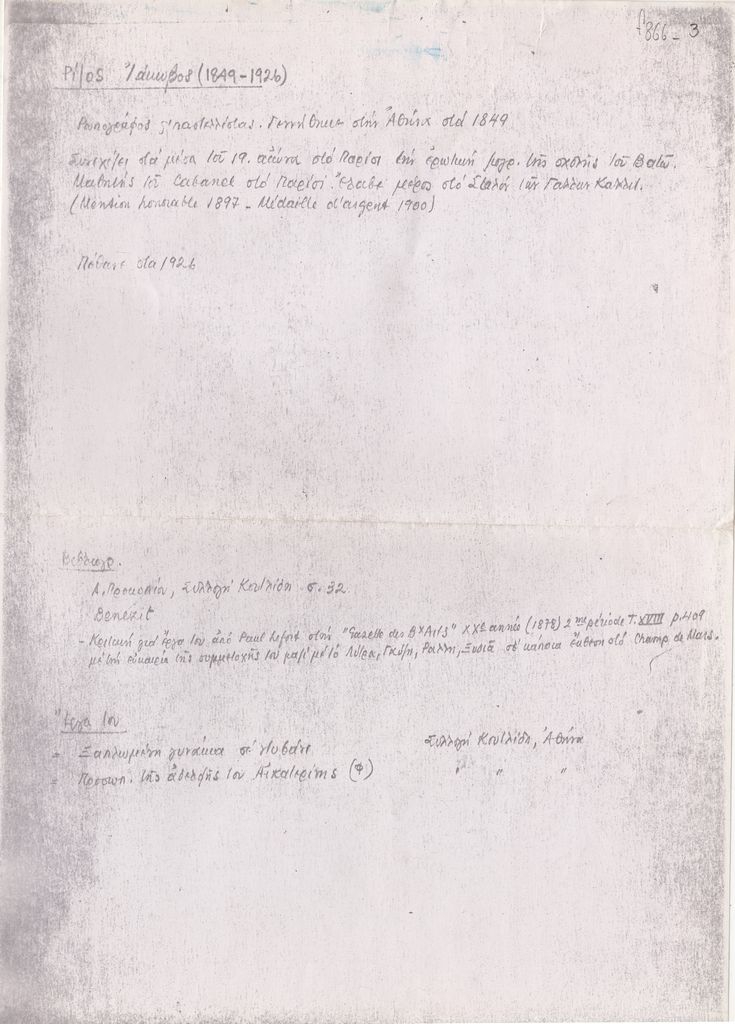 866-3
Ρίζος Ἰάκωβος (1849-1926)
Γεννήθηκε στήν Ἀθήνα στά 1849
Συνεχίζει στά μέσα τοῦ 19. αἰώνα στό Παρίσι τήν τῆς σχολῆς τοῦ
Μαθητής τοῦ Cabanel στό Παρίσι. Ἔλαβε μέρος στό Σαλόν τῶν Γάλλων Καλλιτ.
(Mention honorable 1897 - Médaille d'argent 1900)
Πέθανε στα 1926
Βιβλιογρ.
Α. Προκοπίου, Συλλογή Κουτλίδη σ. 32
Benezit
- Κριτική γιά ἔργα του ἀπό Paul Lefort στήν "Gazette des Bx Arts" XXe année (1878) 2me période T. XVIII p. 409
μέ τήν εὐκαιρία τῆς συμμετοχῆς του μαζί μέ τό Λύτρα, Γκύζη, Ράλλη, Ξυδιά σέ κάποια ἔκθεση στό Champ de Mars.
Ἔργα του
- Ξαπλωμένη γυναίκα σέ ντιβάνι Συλλογή Κουτλίδη, Ἀθήνα
- Προσωπ. τῆς ἀδελφῆς του Αἰκατερίνης (Φ) " " "